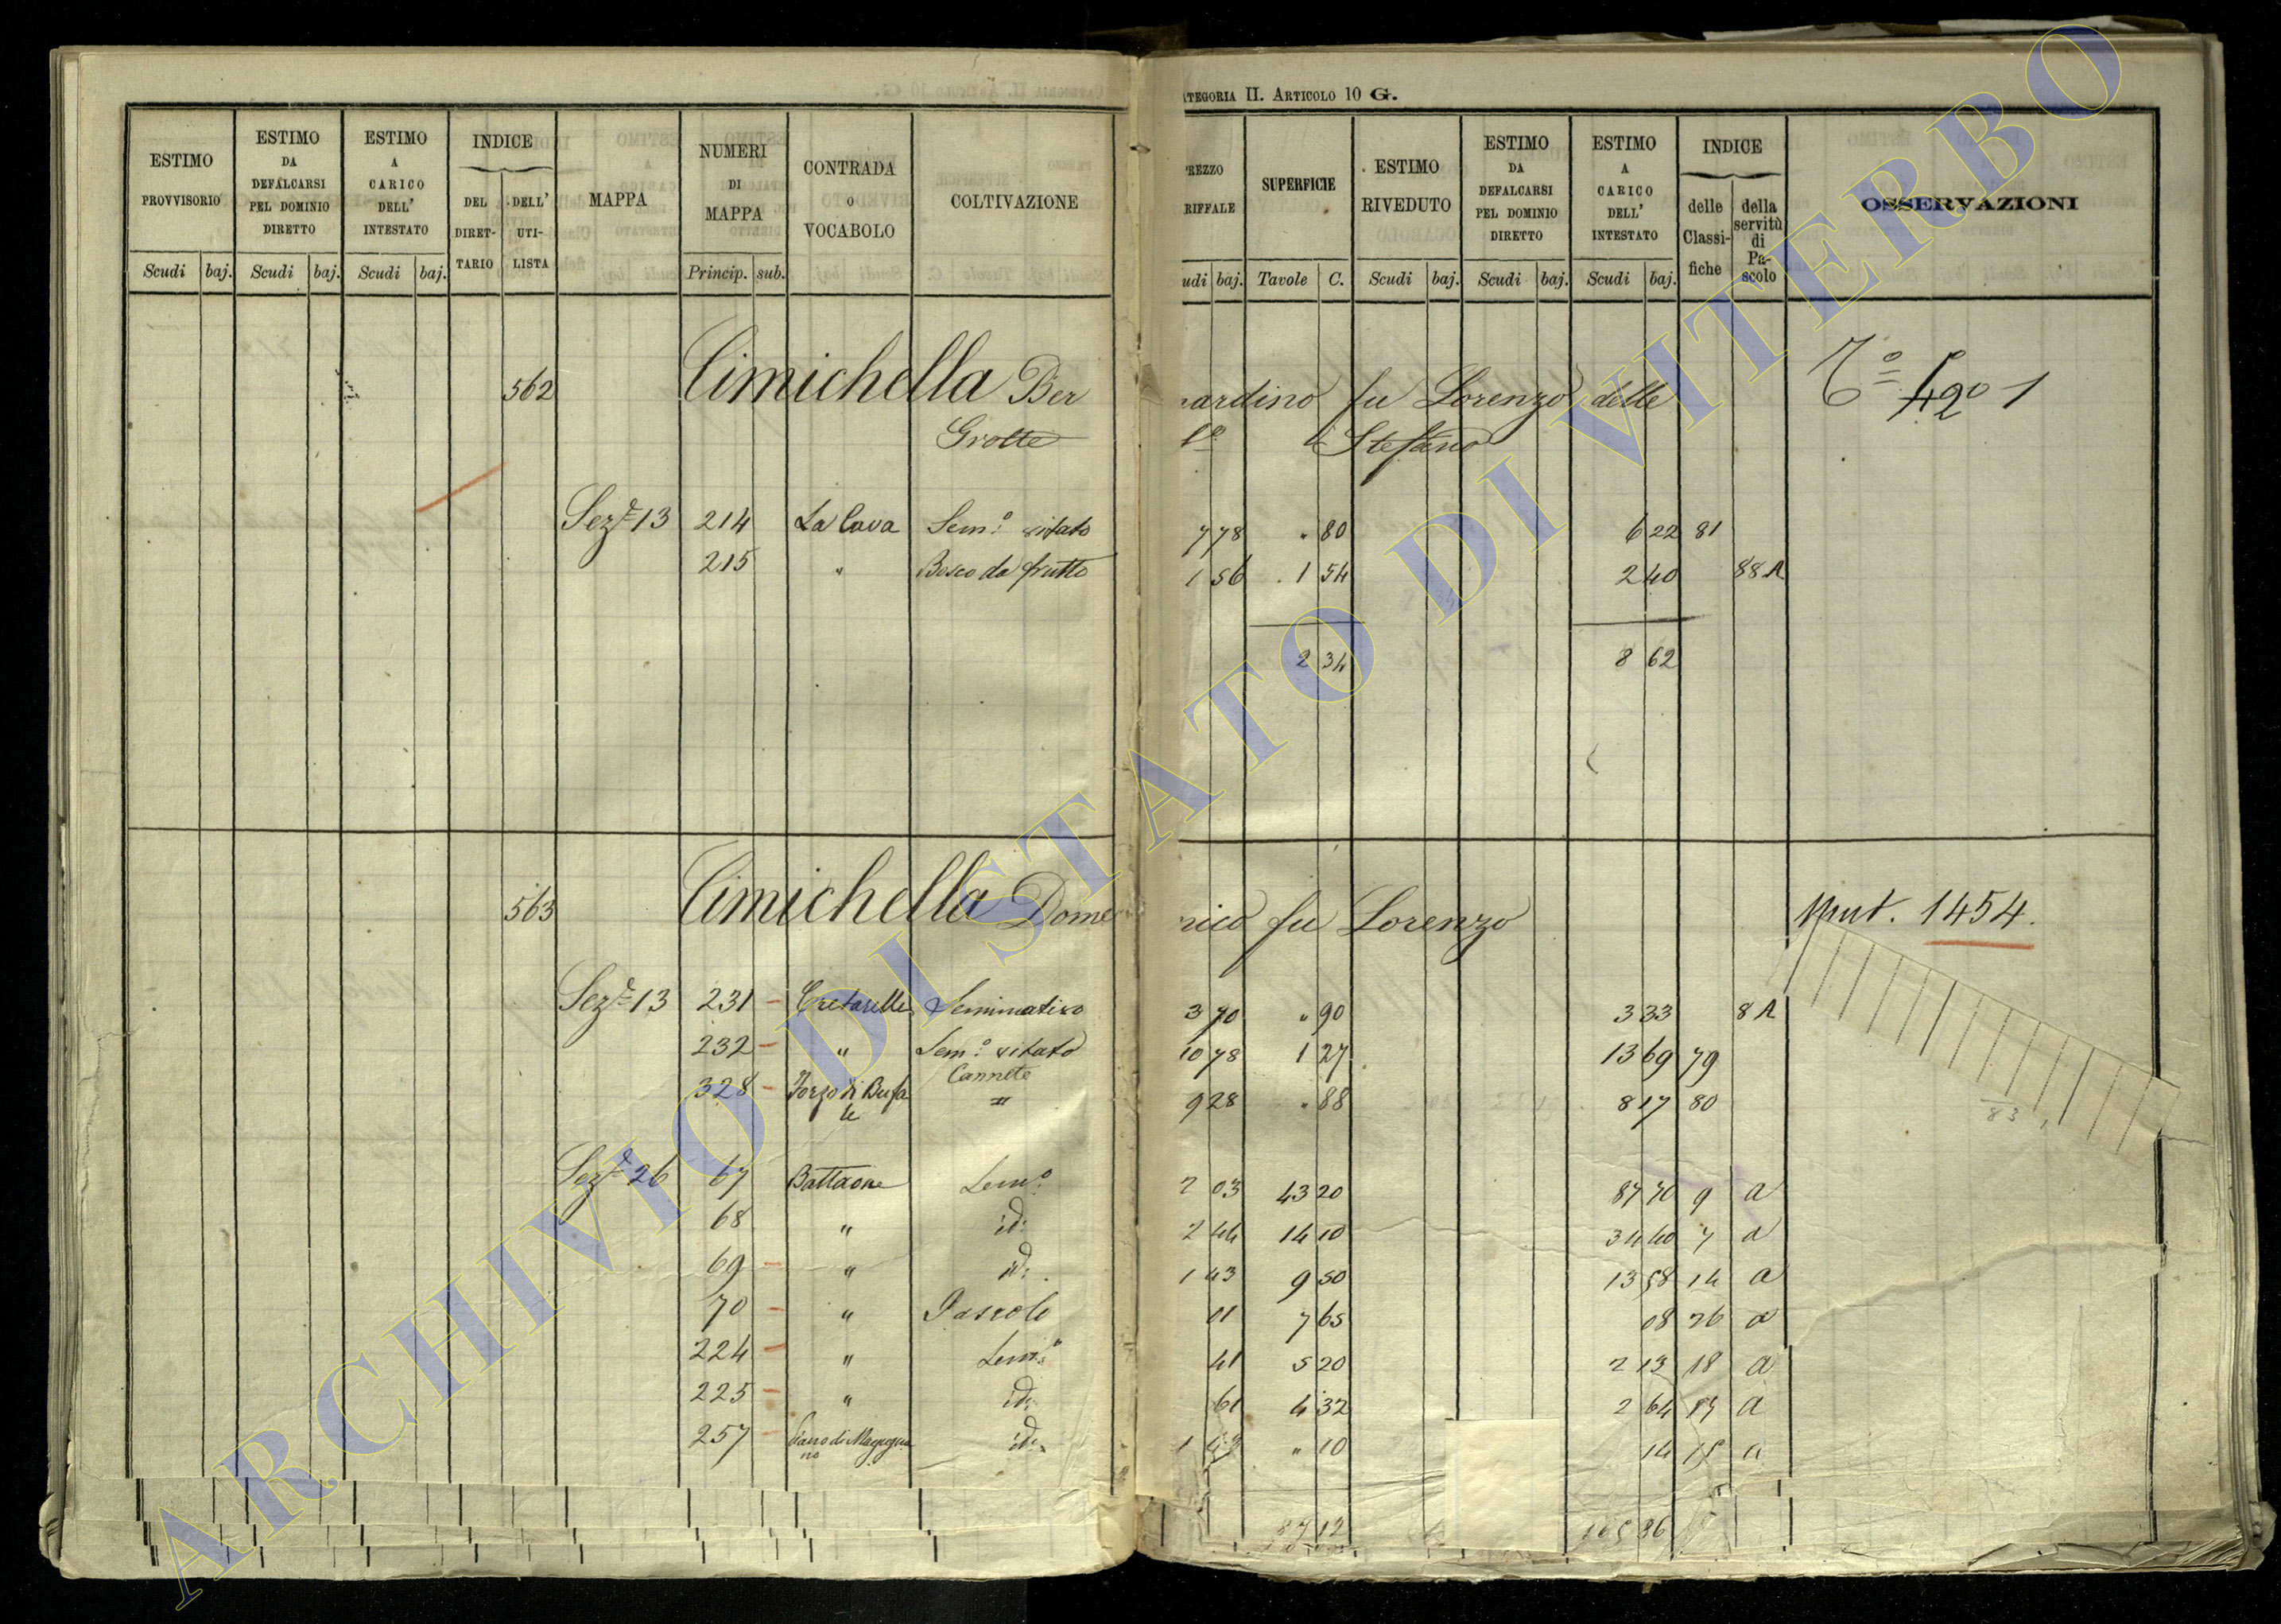 CATEGORIA II. ARTICOLO 10 G.
ESTIMO PROVVISORIO Scudi baj.
ESTIMO DA DEFALCARSI PEL DOMINIO DIRETTO Scudi baj.
ESTIMO A CARICO DELL' INTESTATO Scudi baj.
INDICE DEL DIRET-TARIO DELL' UTI-LISTA
MAPPA
NUMERI DI MAPPA Princip. sub.
CONTRADA O VOCABOLO
COLTIVAZIONE
REZZO RIFFALE udi baj.
SUPERFICIE Tavole C.
ESTIMO RIVEDUTO Scudi baj.
ESTIMO DA DEFALCARSI PEL DOMINIO DIRETTO Scudi baj.
ESTIMO A CARICO DELL' INTESTATO Scudi baj.
INDICE delle Classi-fiche della servitù di Pa-scolo
OSSERVAZIONI
562 Cimichella Bernardino fu Lorenzo delle
Grotte Sto Stefano
Seze 13 214 La Cava Sem.o vitato 7 78 " 80 6 22 81
215 " Bosco da frutto 1 56 1 54 2 40 88 A
2 34 8 62
563 Cimichella Domenico fu Lorenzo Mut. 1454.
Seze 13 231 Cretarelle Seminativo 3 70 " 90 3 33 8 A
232 " Sem.o vitato Cannete 10 78 1 27 13 69 79
328 Forzo di Bufale " 9 28 " 88 8 17 80
83
Seze 26 67 Battaone Sem.o 2 03 43 20 87 70 9 a
68 " id. 2 44 14 10 34 40 7 a
69 " id. 1 43 9 50 13 58 14 a
70 " Pascolo 01 7 65 08 26 a
224 " Sem.o 41 5 20 2 13 18 a
225 " id. 61 4 32 2 64 17 a
257 Piano di Magugnano id. 1 43 " 10 14 15 a
87 12 165 86
ARCHIVIO DI STATO DI VITERBO